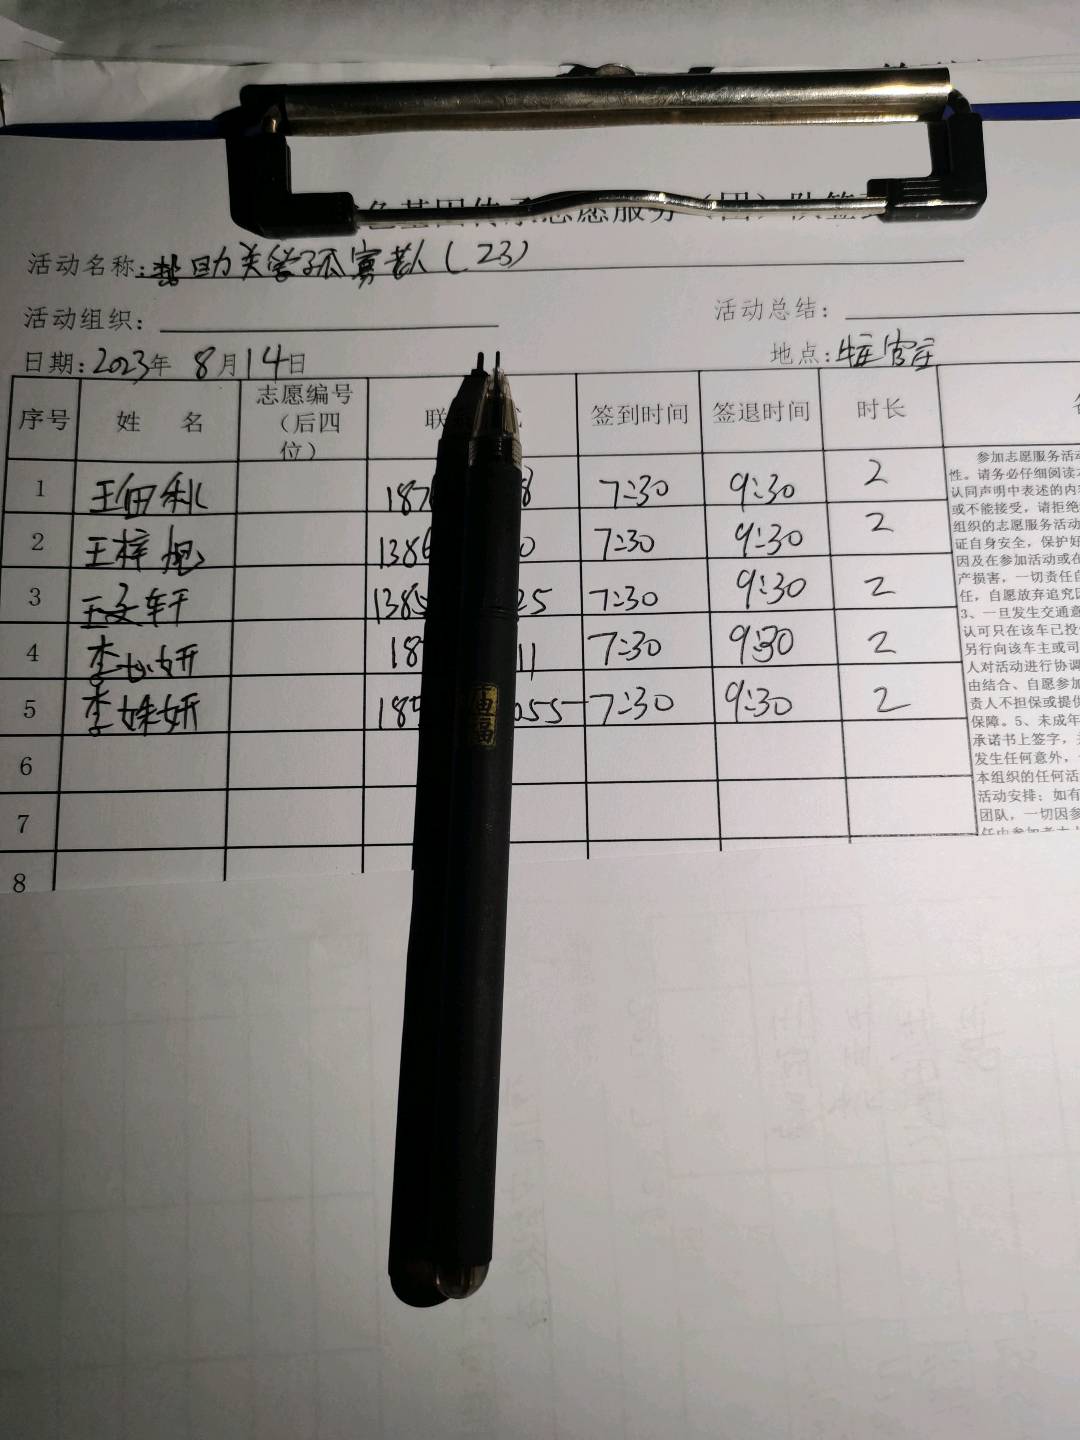 色基因传承志愿服务（团）队签到
活动名称：帮助关爱孤寡老人（23）
活动组织：
活动总结：
日期：2023年 8月14日
地点：
序号 姓 名 志愿编号（后四位） 联 签到时间 签退时间 时长
1 187 8 7:30 9:30 2
2 王梓 138 0 7:30 9:30 2
3 轩 138 25 7:30 9:30 2
4 李 妍 18 11 7:30 9:30 2
5 李姝妍 18 055 7:30 9:30 2
6
7
8
参加志愿服务活动
性。请务必仔细阅读
认同声明中表述的内容
或不能接受，请拒绝
组织的志愿服务活动
证自身安全，保护好
因及在参加活动或在
产损害，一切责任自
任，自愿放弃追究
3、一旦发生交通意
认可只在该车已投
另行向该车主或司
人对活动进行协调
由结合、自愿参加
责人不担保或提供
保障。5、未成年
承诺书上签字，
发生任何意外，
本组织的任何活
活动安排；如有
团队，一切因参
福